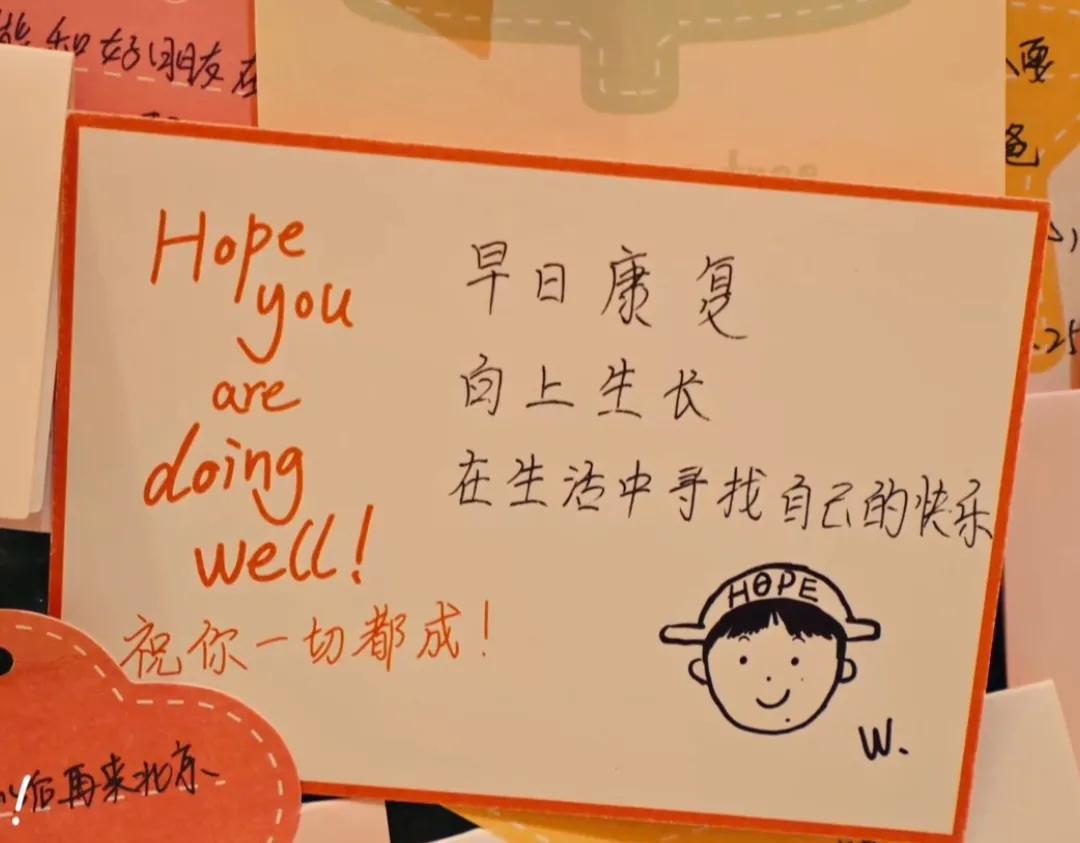 和好朋友在
要
爸
.25
Hope
you
are
doing
well!
祝你一切都成!
早日康复
向上生长
在生活中寻找自己的快乐
HOPE
W.
后再来北京
!